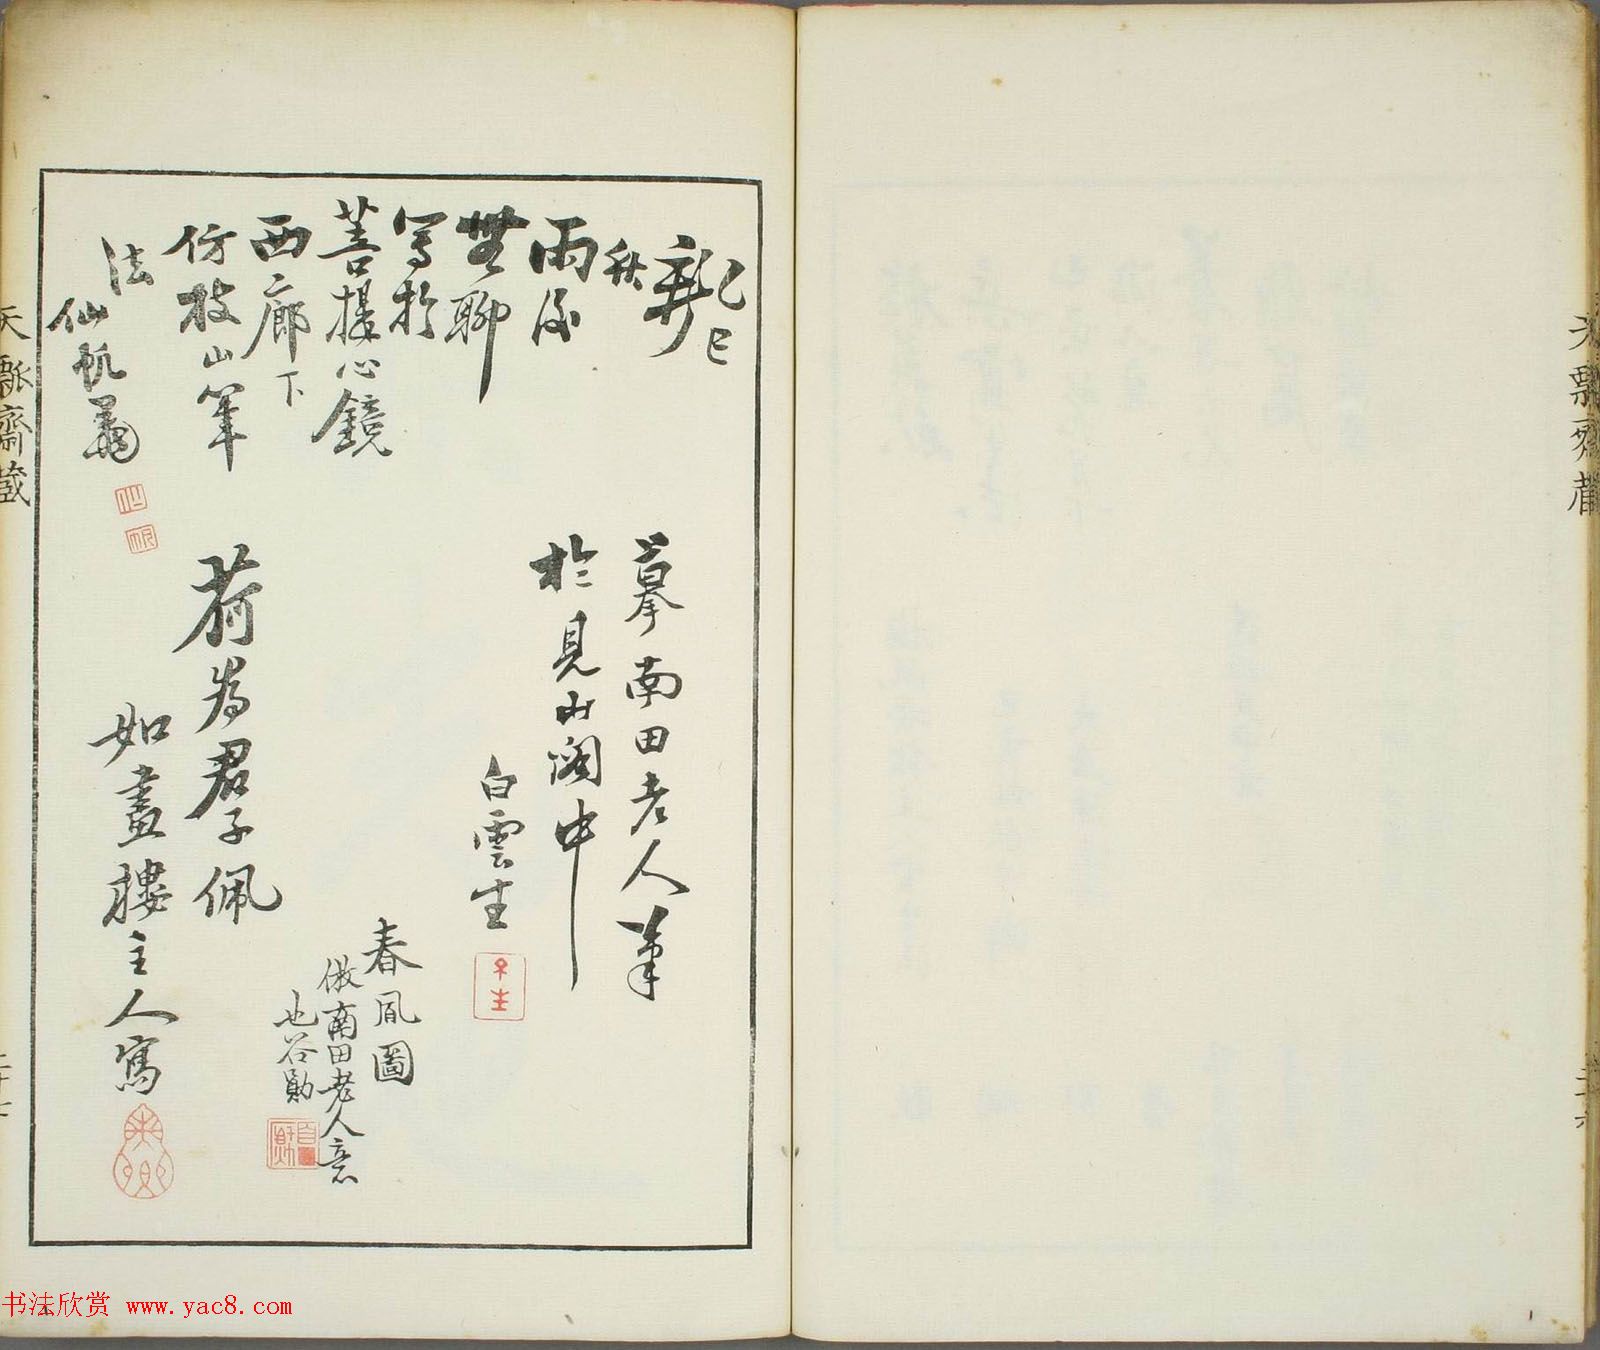 秋
雨後
無聊
寫於
菩提心鏡
西廊下
仿枝山筆
法
仙帆
摹南田老人筆
於見山閣中
白雲生
春風圖
倣南田老人意
也谷勛
荷為君子佩
如畫樓主人寫
天瓢齋藏
二十七
書法欣賞 www.yac8.com